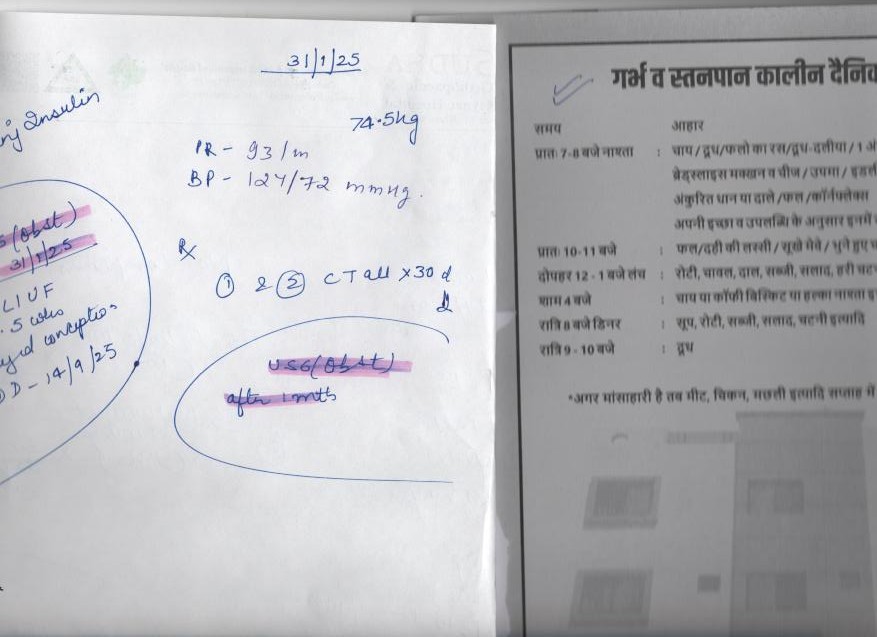 31/1/25
inj Insulin
74.5kg
PR - 93/m
BP - 124/72 mmHg.
(Obst)
31/1/25
SLIUF
.5 wks
conception
EDD - 14/9/25
Rx
① & ② CT all x 30 d
USG (Obst)
after 1 mth
गर्भ व स्तनपान कालीन दैनिक
समय आहार
प्रातः 7-8 बजे नाश्ता : चाय/दूध/फलो का रस/दूध-दलीया/1 अं
ब्रेडस्लाइस मक्खन व चीज/उपमा/इडली
अंकुरित धान या दाले/फल/कॉर्नफ्लेक्स
अपनी इच्छा व उपलब्धि के अनुसार इनमें
प्रातः 10-11 बजे : फल/दही की लस्सी/सूखे मेवे/भुने हुए
दोपहर 12-1 बजे लंच : रोटी, चावल, दाल, सब्जी, सलाद, हरी चट
शाम 4 बजे : चाय या कॉफी बिस्किट या हल्का नाश्ता
रात्रि 8 बजे डिनर : सूप, रोटी, सब्जी, सलाद, चटनी इत्यादि
रात्रि 9-10 बजे : दूध
*अगर मांसाहारी है तब मीट, चिकन, मछली इत्यादि सप्ताह में